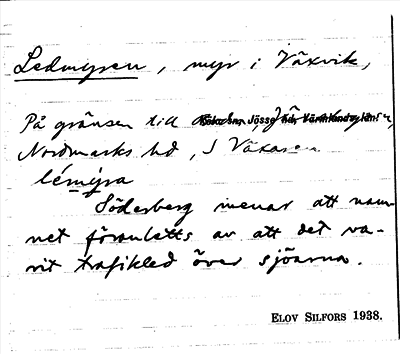 Ledmyren, myr i Växvik,
På gränsen till
Nordmarks hd, S Växasen
lémyra
Söderberg menar att nam-
net föranletts av att det va-
rit trafikled över sjöarna.
ELOV SILFORS 1938.